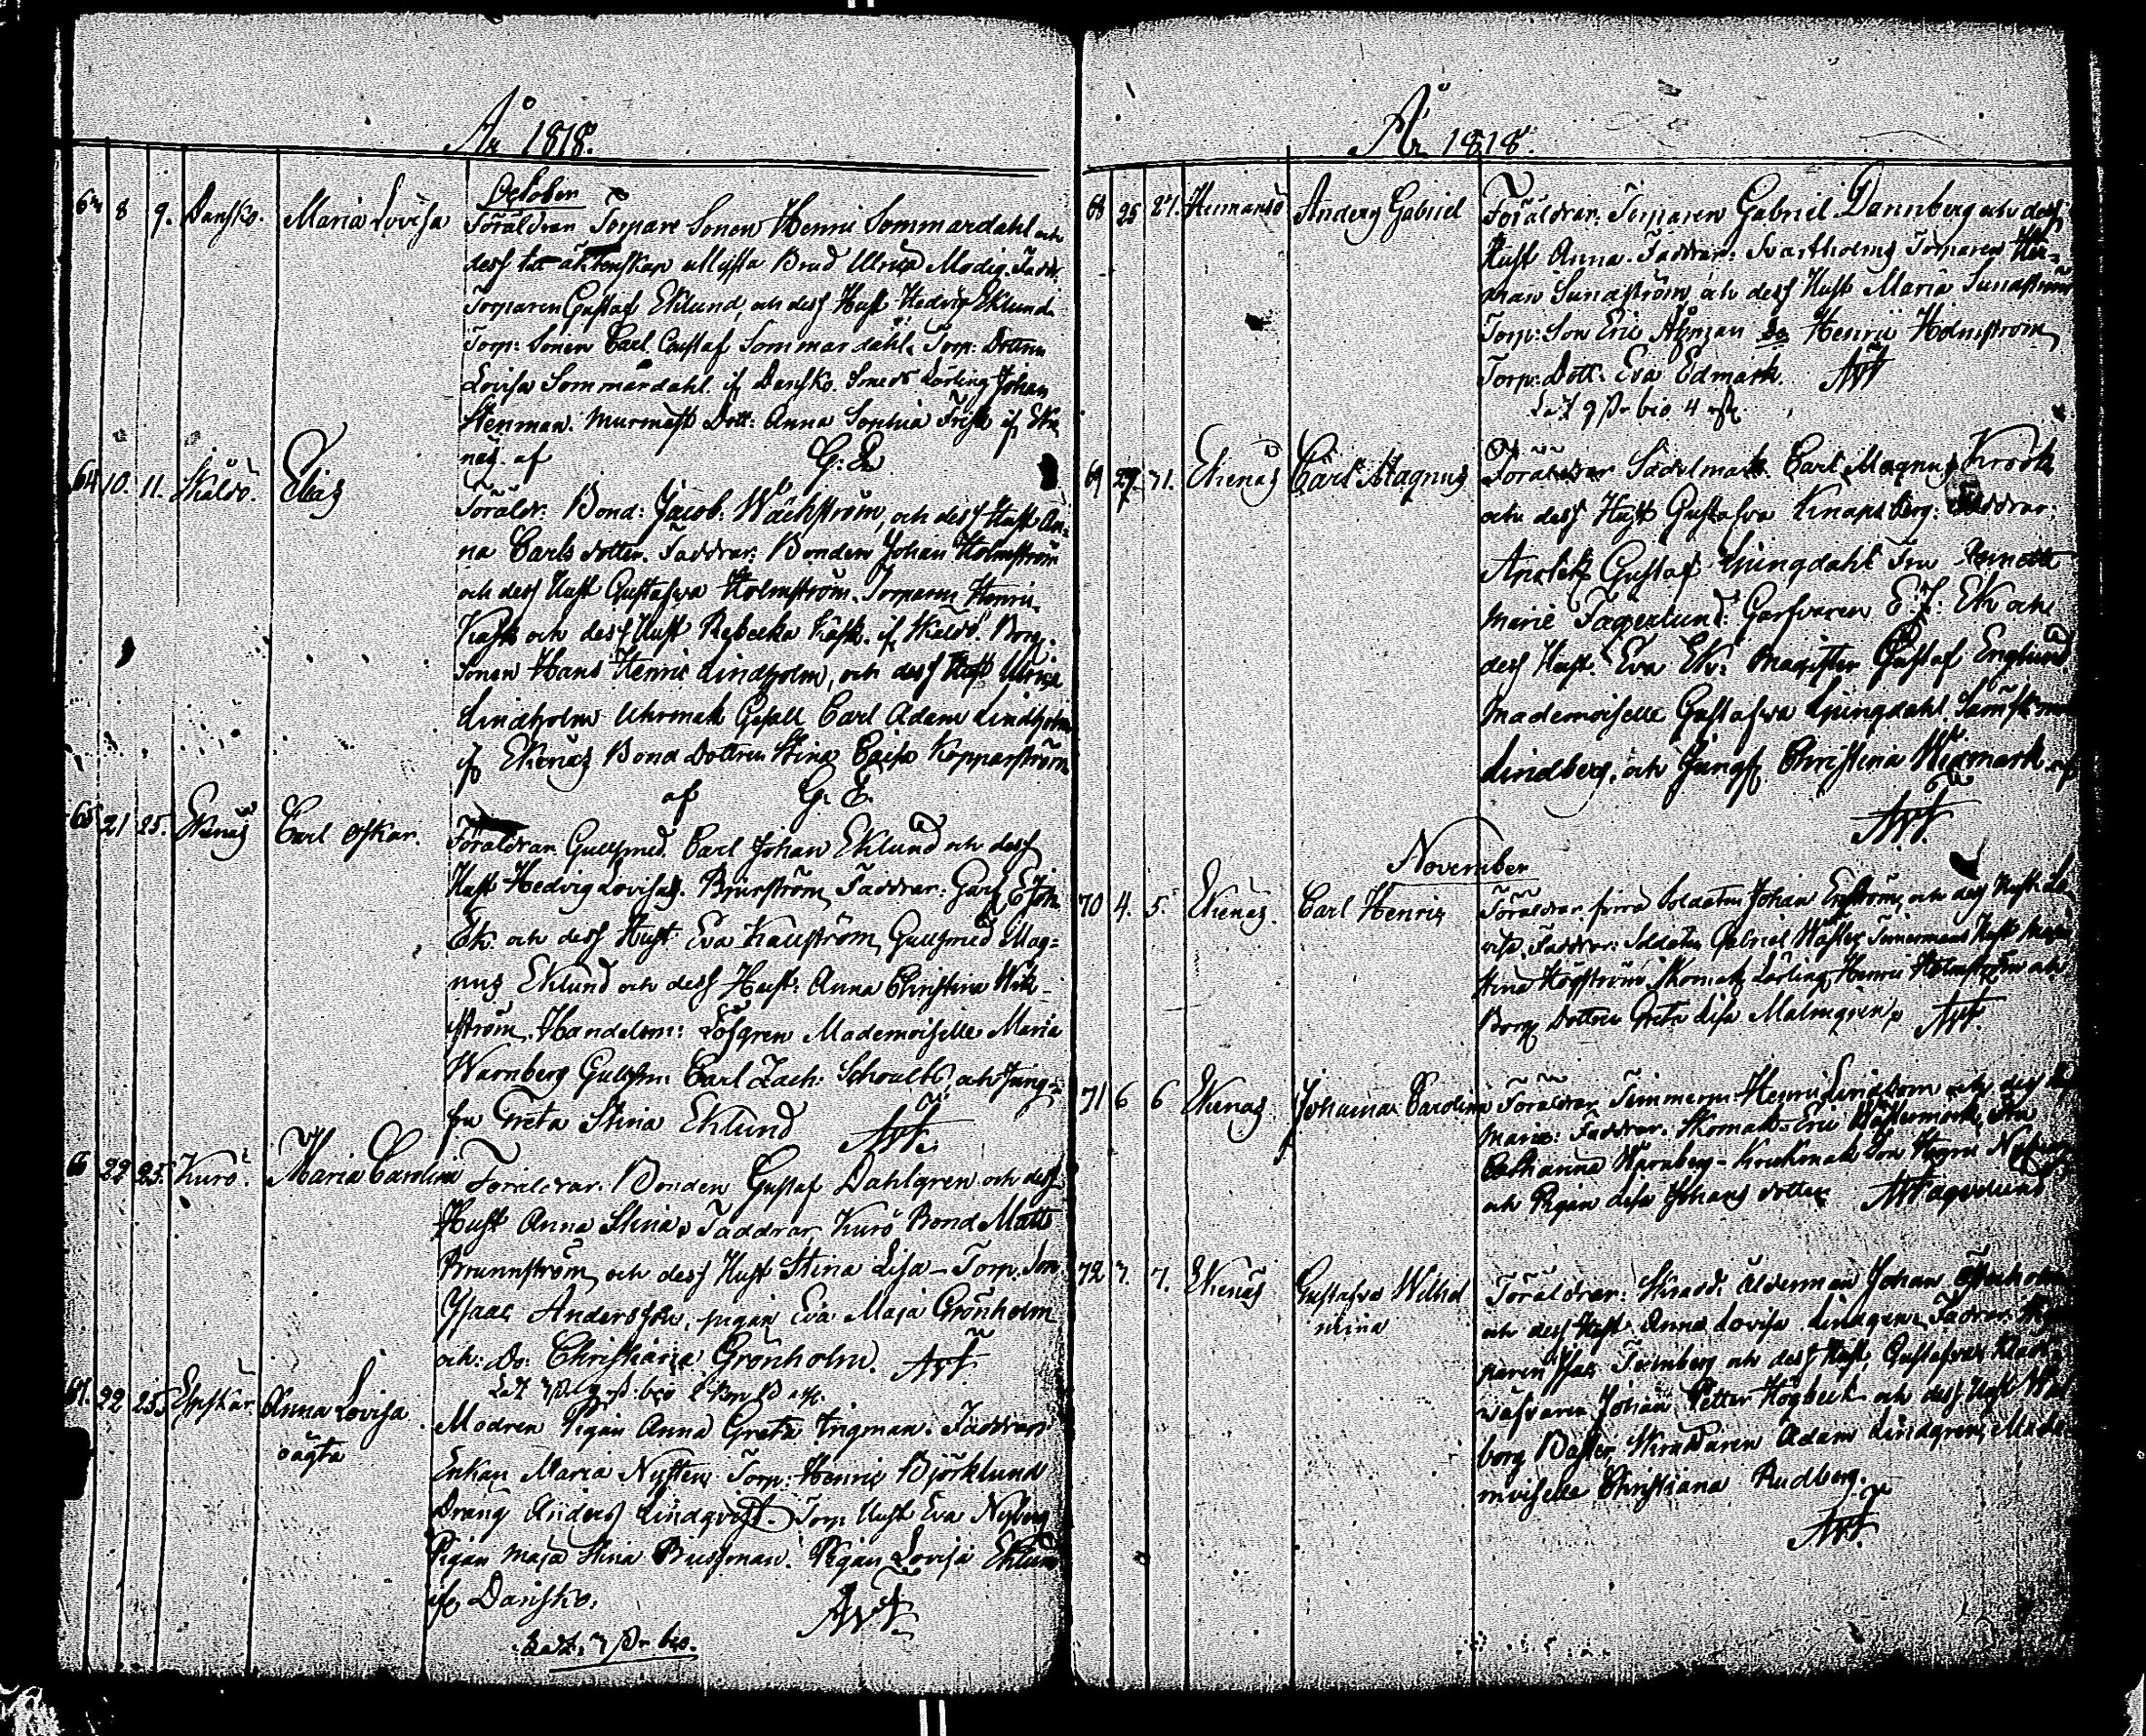 År 1818.
October
8 9. Dansko. Maria Lovisa Föräldrar Torpare Sonen Henric Sommardahl och
dess äktenskap Brud Ulrica Modig. Fadd:
Torparen Gustaf Eklund, och dess Hust Hedvig Eklund.
Torp: Sonen Carl Gustaf Sommardahl. Torp: Dottren
Lovisa Sommardahl if Dansko. Lärling Johan
Stenman. Murmäst Dott: Anna Sophia Frisk if Eke
näs. af G: E.
64 10. 11. Skåldö. Elias
Föräldr: Bond: Jacob Wäckström, och dess Hust An-
na Carls dotter. Faddrar: Bonden Johan Holmström
och dess Hust Gustafva Holmström. Torparen Henric
Kask och dess Hust Rebecka Kask. if Skåldö. Borg.
Sonen Hans Henric Lindholm, och dess Hust Ulrica
Lindholm Uhrmak Gesäll Carl Adam Lindholm
if Ekenäs Bond Dottren Stina Caisa Kopparström
af G: E.
65 21 25. Ekenäs Carl Oskar.
Föräldrar. Gullsmed. Carl Johan Eklund och dess
Hust Hedvig Lovisa Björström Faddrar: Garf. E. Joh.
Ek. och dess Hust: Eva Kallström, Gullsmed Mag-
nus Eklund och dess Hust: Anna Christina Wik-
ström. Handelsm: Löfgren Mademoiselle Maria
Warnberg Gullsm: Carl Zach: Schoultz, och Jung-
fru Greta Stina Eklund
66 22 25. Kurö. Maria Carolina Föräldrar. Bonden Gustaf Dahlgren och dess
Hust Anna Stina. Faddrar, Kurö Bond Matts
Brunnström, och dess Hust Stina Lisa - Torp. Son
Isaac Andersson, pigan Eva Maja Grönholm
och: Do: Christiana Grönholm.
67. 22 25. Anna Lovisa
oägta
Modren Pigan Anna Greta Tingman. Faddrar
Enkan Maria Nysten Torp: Henric Björklund
Dräng Anders Lindqvist. Torp Hust Eva Nyberg
Pigan Maja Stina Bussman. Pigan Lovisa Eklund
if Dansko.
År 1818.
68 25 27. Hermansö Anders Gabriel Föräldrar: Torparen Gabriel Dannberg och dess
Hust Anna. Faddrar: Svartholms Torparen Her-
man Sundström, och dess Hust Maria Sundström
Torp: Son Eric Åhman Do Henric Holmström
Torp: Dott: Eva Edmark.
69 27. 31. Ekenäs Carl Magnus Föräldrar Sadelmak. Carl Magnus Krook
och dess Hust Gustafva Knapsberg: Faddrar.
Apotek Gustaf Ljungdahl Fru
Marie Fagerlund: Garfvaren E: J: Ek och
dess Hust. Eva Ek: Magister Gustaf Englund
Mademoiselle Gustafva Ljungdahl
Lindberg, och Jungf. Christina Wikmark
November
70 4. 5. Ekenäs. Carl Henric Föräldrar förra Soldaten Johan Enström, och dess Hust Lo-
visa. Faddrar: Soldaten Gabriel Timermans Hust Maja
Stina Högström, Skomak Lärling Henric Holmström och
Borg Dottren Greta Lisa Malmgren.
71 6 6 Ekenäs Johanna Carolina Föräldrar Timmerm: Henric Lindbom och dess
Maria: Faddrar. Skomak Eric
Catharina Warnberg - Krukmak Son Henric
och Pigan Lisa Johans dotter
72 7. 7. Ekenäs Gustafva Wilhel
mina
Föräldrar: Skradd: Ålderman Johan
och dess Hust Anna Lovisa Lindgren, Faddr:
och dess Hust, Gustafva
Johan Petter Högbeck och dess Hust Wal
borg Skraddaren Adam Lindgren, Made
moiselle Christiana Rudberg.